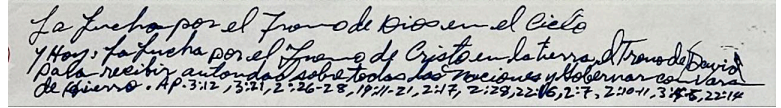 La Lucha por el Trono de Dios en el Cielo
y Hoy: La Lucha por el Trono de Cristo en la tierra, el Trono de David
para recibir autoridad sobre todas las Naciones y Gobernar con Vara
de hierro. AP. 3:12, 3:21, 2:26-28, 19:11-21, 2:17, 2:28, 22:16, 2:7, 2:10-11, 3:4-5, 22:14